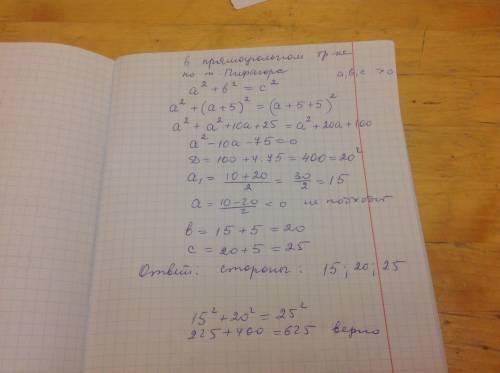 в прямоугольном тр-ке
по т. Пифагора a,b,c >0
a² + b² = c²
a² + (a+5)² = (a+5+5)²
a² + a² +10a+25 = a² +20a+100
a² -10a -75=0
D = 100 + 4·75 = 400 = 20²
a₁ = 10+20/2 = 30/2 = 15
a = 10-20/2 < 0 не подходит
b = 15 + 5 = 20
c = 20 + 5 = 25
Ответ: стороны: 15; 20; 25
15² + 20² = 25²
225 + 400 = 625 верно